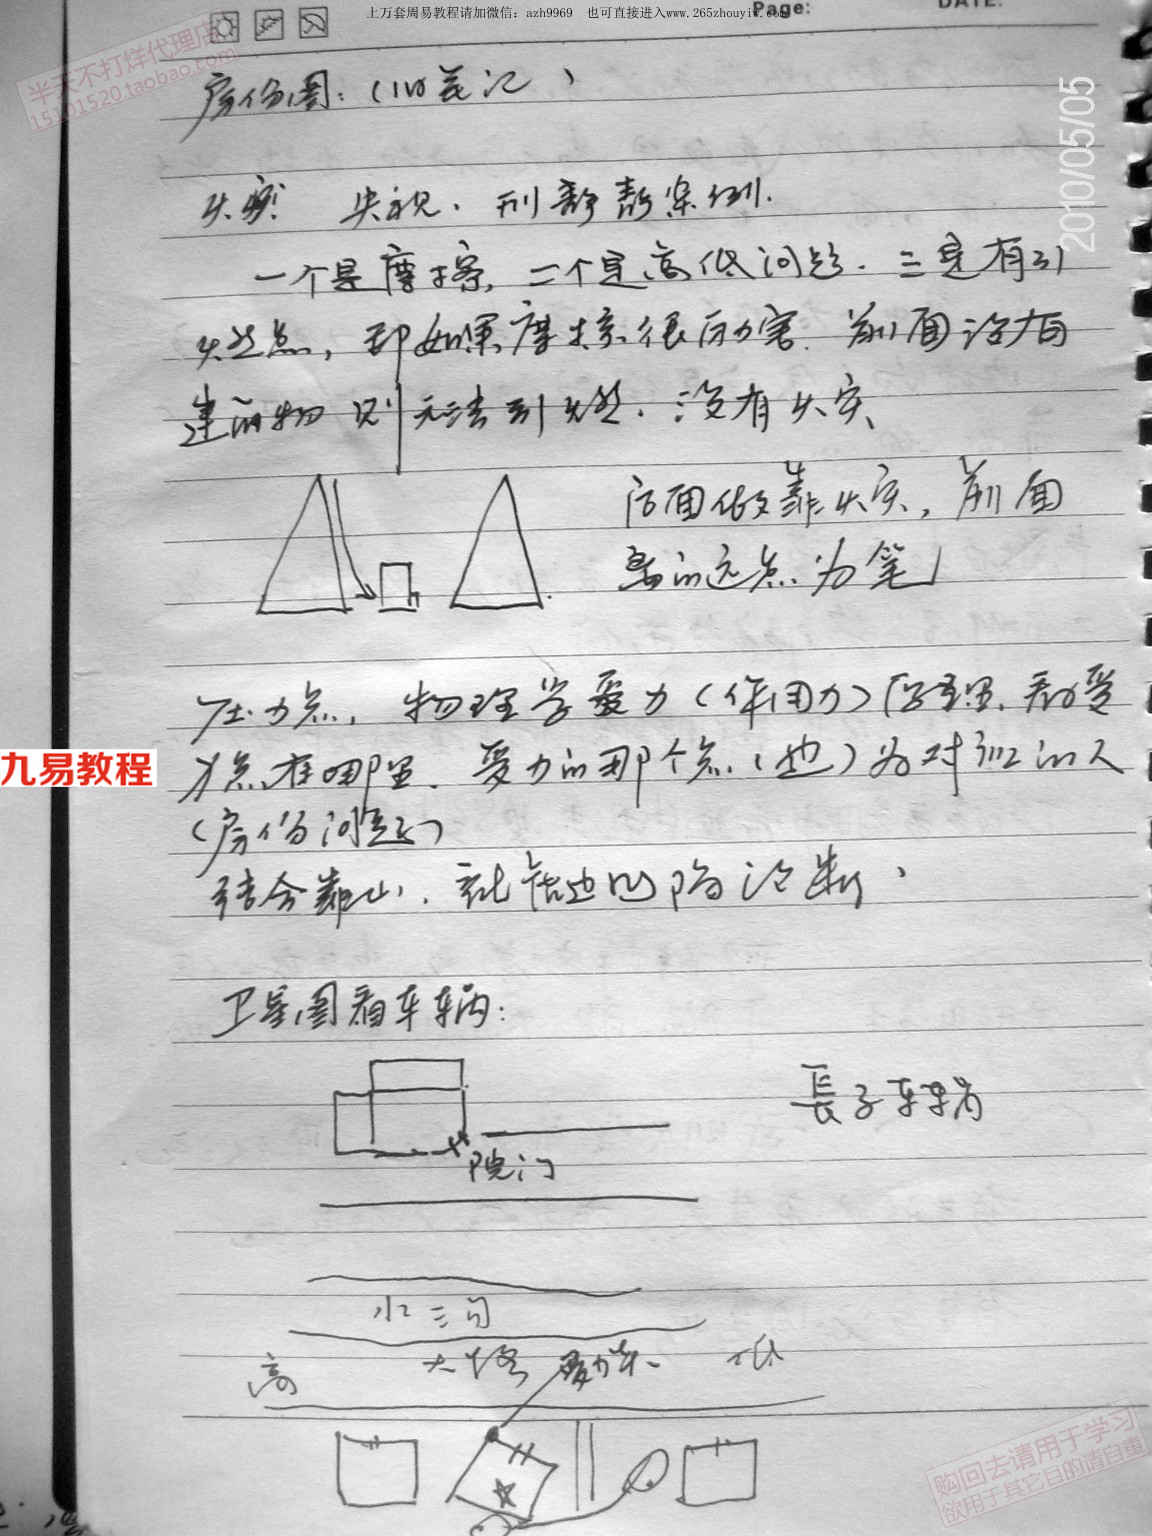 上万套周易教程请加微信：azh9969 也可直接进入www.265zhouyi.com
Page:
DATE:
半天不打烊代理店
15101520.taobao.com
2010/05/05
房份图：（
火灾 央视、刑 案例.
一个是摩擦，二个是高低问题．三是有引
火然点，即如果摩擦很厉害．前面没有
建的物 则无法引燃．没有火灾、
后面做靠火灾，前面
的远点为笔
压力点，物理学受力（作用力）原理．看受
力点在哪里．受力的那个点（边）为对应的人
（房份问题）
结合靠山、 凹陷论断、
卫星图看车辆：
長子车祸
院门
水三沟
高 大路 受力点 低
九易教程
购回去请用于学习
欲用于其它目的请自重